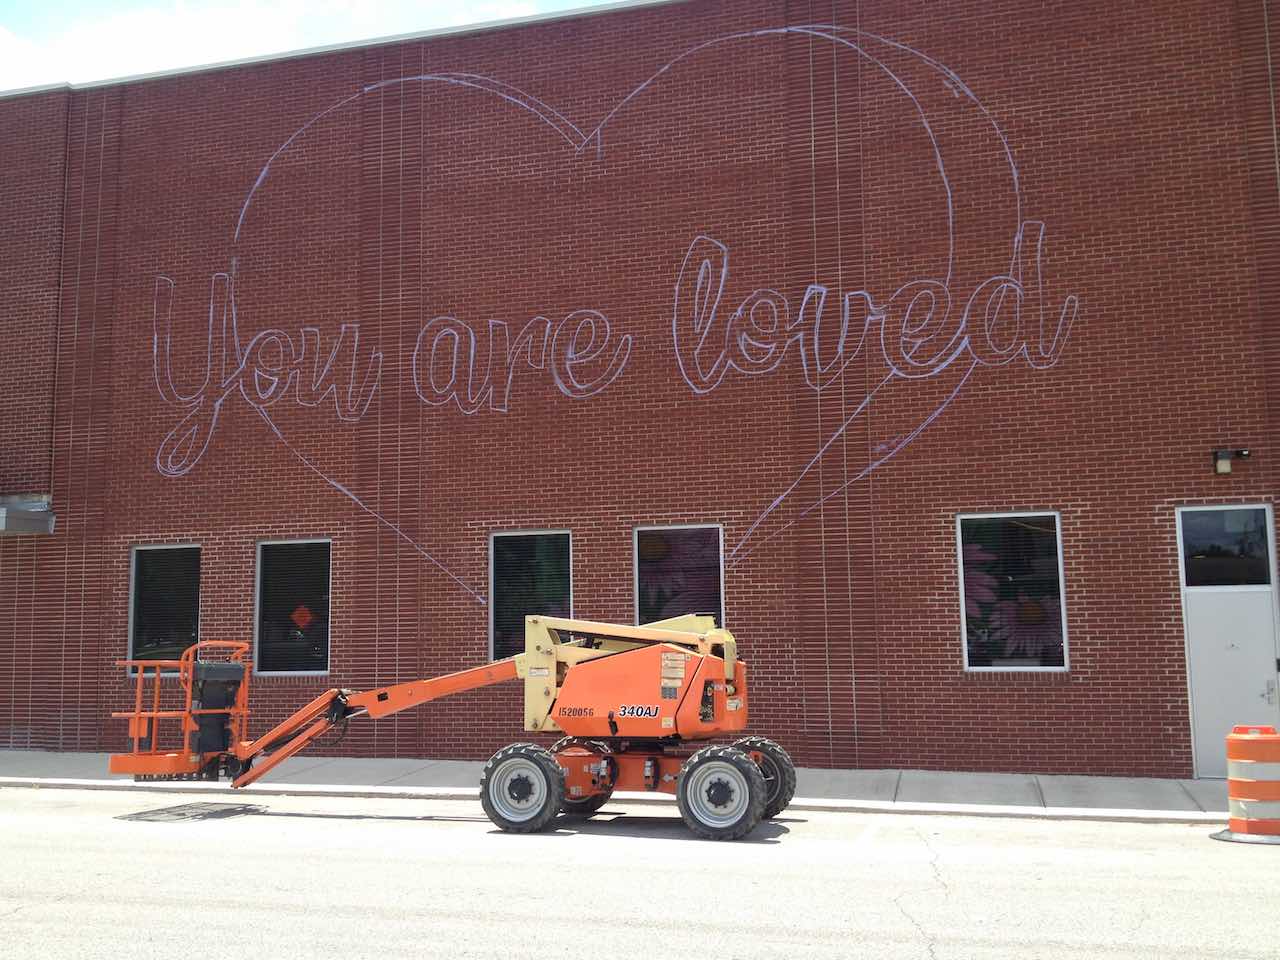 You are loved
1520056 340AJ